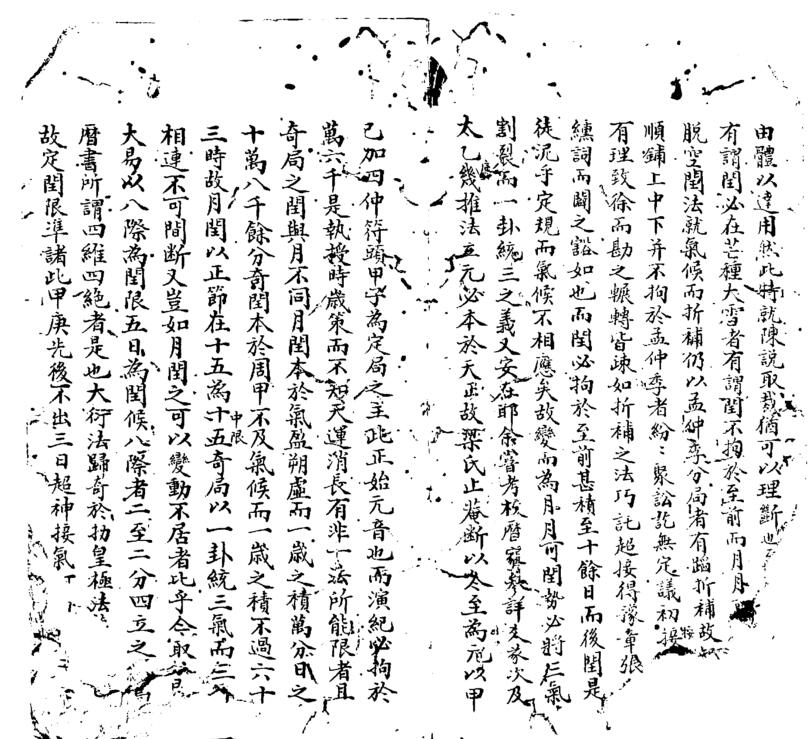 由體以達用然此特就陳說取裁猶可以理斷也
有謂閏必在芒種大雪者有謂閏不拘於至前而月月
脫空閏法就氣候而折補仍以孟仲季分局者有蹈折補故
順鋪上中下并不拘於孟仲季者紛〻聚訟訖無定議初接
有理致徐而勘之輾轉皆疎如折補之法巧託超接得豫章張
纁詞而闢之豁如也而閏必拘於至前甚積至十餘日而後閏是
徒泥乎定規而氣候不相應矣故變而為月月可閏勢必將三氣
割裂而一卦統三之義又安在耶余嘗考校曆參詳支家次及
太乙幾推法立元必本於天正故梁氏止菴斷以冬至為元以甲
己加四仲符頭甲子為定局之主此正始元音也而演紀必拘於
萬六千是執授時歲策而不知天運消長有非一法所能限者且
奇局之閏與月不同月閏本於氣盈朔虛而一歲之積萬分日之
十萬八千餘分奇閏本於周甲不及氣候而一歲之積不過六十
三時故月閏以正節在十五為十五奇局以一卦統三氣而三
中限
相連不可間斷又豈如月閏之可以變動不居者比乎今取
大易以八際為閏限五日為閏候八際者二至二分四立之
曆書所謂四維四絕者是也大衍法歸奇於扐皇極法
故定閏限準諸此甲庚先後不出三日超神接氣